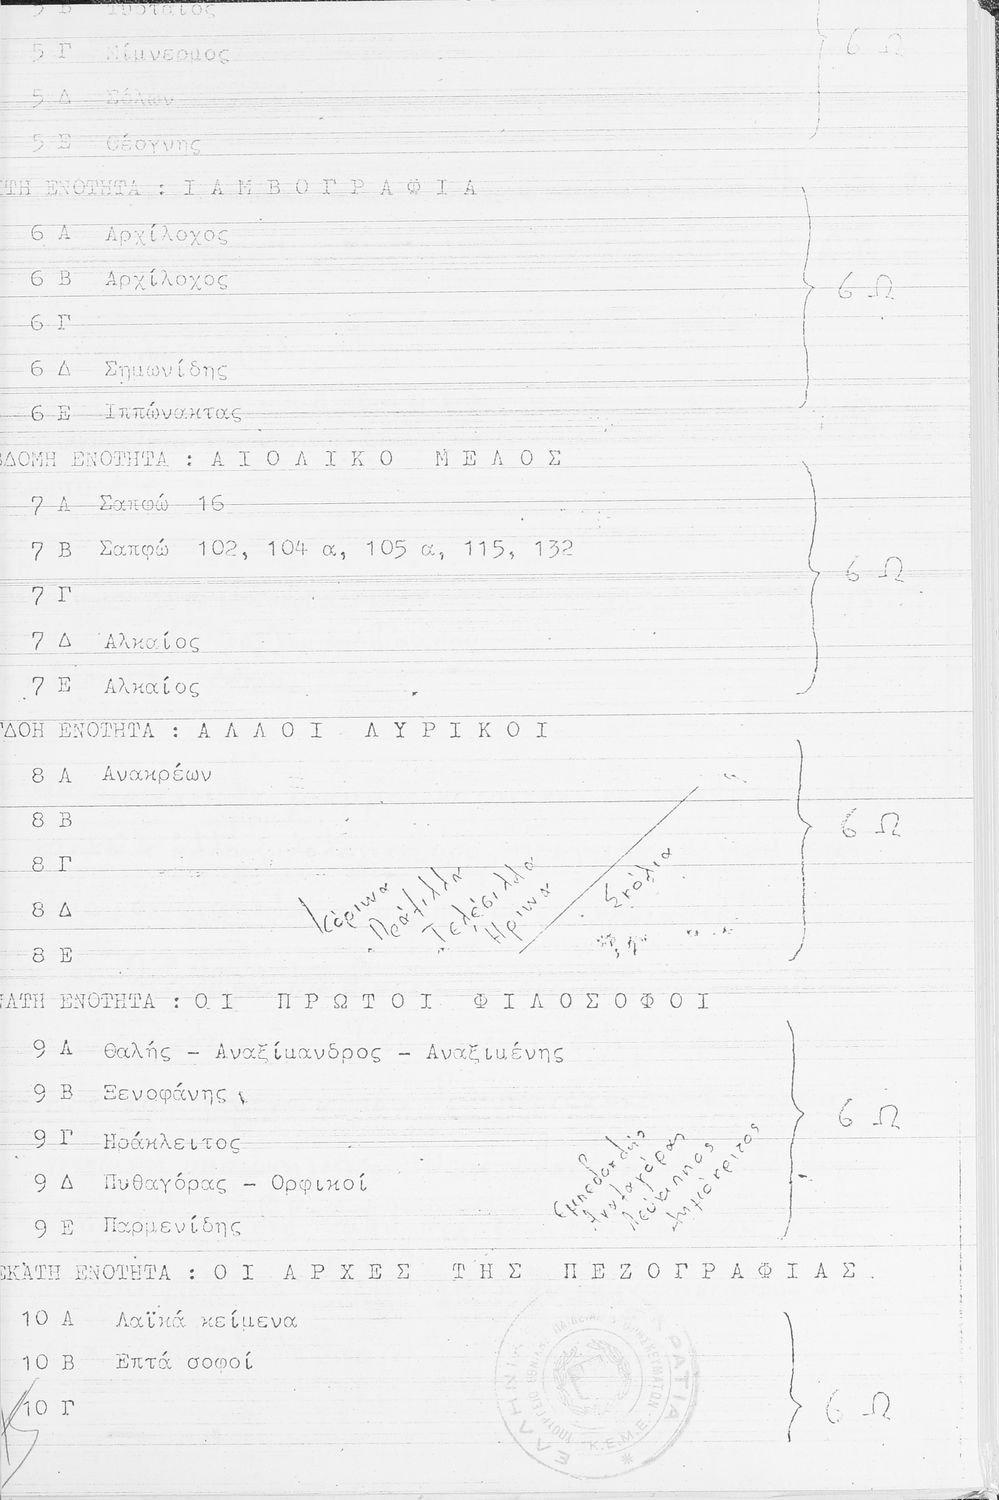 5 Β Τυρταίος
5 Γ Μίμνερμος
6 Ω
5 Δ Σόλων
5 Ε Θέογνης
ΤΗ ΕΝΟΤΗΤΑ : Ι Α Μ Β Ο Γ Ρ Α Φ Ι Α
6 Α Αρχίλοχος
6 Β Αρχίλοχος
6 Ω
6 Γ
6 Δ Σημωνίδης
6 Ε Ιππώνακτας
ΔΟΜΗ ΕΝΟΤΗΤΑ : Α Ι Ο Λ Ι Κ Ο Μ Ε Λ Ο Σ
7 Α Σαπφώ 16
7 Β Σαπφώ 102, 104 α, 105 α, 115, 132
6 Ω
7 Γ
7 Δ Αλκαίος
7 Ε Αλκαίος
ΔΟΗ ΕΝΟΤΗΤΑ : Α Λ Λ Ο Ι Λ Υ Ρ Ι Κ Ο Ι
8 Α Ανακρέων
8 Β
6 Ω
8 Γ
Κόριννα
Πράξιλλα
Τελέσιλλα
Ηρινα
Σκόλια
8 Δ
8 Ε
ΑΤΗ ΕΝΟΤΗΤΑ : Ο Ι Π Ρ Ω Τ Ο Ι Φ Ι Λ Ο Σ Ο Φ Ο Ι
9 Α Θαλής - Αναξίμανδρος - Αναξιμένης
9 Β Ξενοφάνης
6 Ω
9 Γ Ηράκλειτος
Εμπεδοκλής
Αναξαγόρας
Λεύκιππος
Δημόκριτος
9 Δ Πυθαγόρας - Ορφικοί
9 Ε Παρμενίδης
ΕΚΑΤΗ ΕΝΟΤΗΤΑ : Ο Ι Α Ρ Χ Ε Σ Τ Η Σ Π Ε Ζ Ο Γ Ρ Α Φ Ι Α Σ .
10 Α Λαϊκά κείμενα
10 Β Επτά σοφοί
10 Γ
6 Ω
Κ.Ε.Μ.Ε.